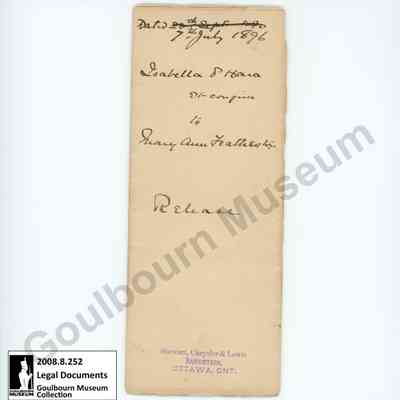 Dated 20th Sept 1890
7th July 1896
Isabella O'Hara
et conjux
to
Mary Ann Featherston
Release
Stewart, Chrysler & Lewis
Barristers,
OTTAWA, ONT.
Goulbourn Museum
2008.8.252
Legal Documents
Goulbourn Museum
Collection
MUSEUM